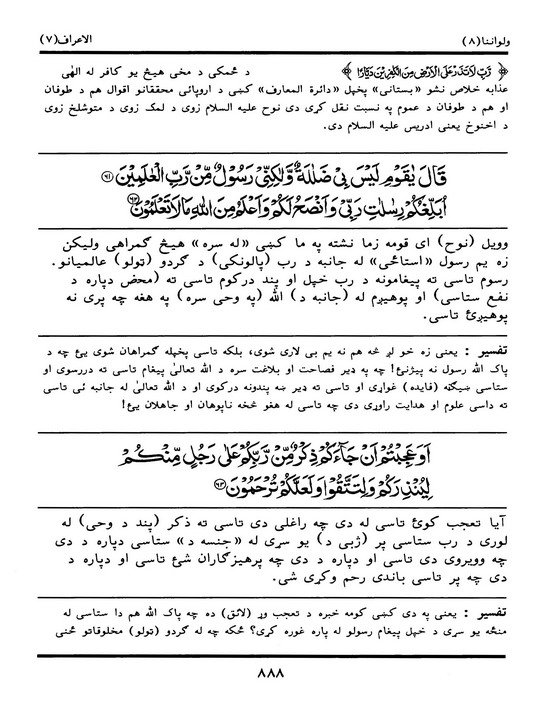 ولواننا(۸) الاعراف(۷)
﴿ رَّبِّ لَا تَذَرْ عَلَى الْأَرْضِ مِنَ الْكٰفِرِيْنَ دَيَّارًا ﴾ د ځمکی د مخی هیڅ یو کافر له الهٰی
عذابه خلاص نشو «بستانی» پخپل «دائرة المعارف» کښی د اروپائی محققانو اقوال هم د طوفان
او هم د طوفان د عموم په نسبت نقل کړی دی نوح علیه السلام زوی د لمک زوی د متوشلخ زوی
د اخنوخ یعنی ادریس علیه السلام دی.
قَالَ يٰقَوْمِ لَيْسَ بِيْ ضَلٰلَةٌ وَّلٰكِنِّيْ رَسُوْلٌ مِّنْ رَّبِّ الْعٰلَمِيْنَ ۶۱
اُبَلِّغُكُمْ رِسٰلٰتِ رَبِّيْ وَاَنْصَحُ لَكُمْ وَاَعْلَمُ مِنَ اللّٰهِ مَا لَا تَعْلَمُوْنَ ۶۲
وویل (نوح) ای قومه زما نشته په ما کښی «له سره» هیڅ گمراهی ولیکن
زه یم رسول «استاځی» له جانبه د رب (پالونکی) د گردو (ټولو) عالمیانو.
رسوم تاسی ته پیغامونه د رب خپل او پند درکوم تاسی ته (محض دپاره د
نفع ستاسی) او پوهیږم له (جانبه د) الله (په وحی سره) په هغه چه پری نه
پوهیږئ تاسی.
تفسیر : یعنی زه خو لږ څه هم نه یم بی لاری شوی، بلکه تاسی پخپله گمراهان شوی یئ چه د
پاک الله رسول نه پیژنئ! چه په ډیر فصاحت او بلاغت سره د الله تعالیٰ پیغام تاسی ته دررسوی او
ستاسی ښیگڼه (فایده) غواړی او تاسی ته ډیر ښه پندونه درکوی او د الله تعالیٰ له جانبه ئی تاسی
ته داسی علوم او هدایت راوړی دی چه تاسی له هغو څخه ناپوهان او جاهلان یئ!
اَوَعَجِبْتُمْ اَنْ جَآءَكُمْ ذِكْرٌ مِّنْ رَّبِّكُمْ عَلٰى رَجُلٍ مِّنْكُمْ
لِيُنْذِرَكُمْ وَلِتَتَّقُوْا وَلَعَلَّكُمْ تُرْحَمُوْنَ ۶۳
آیا تعجب کوئ تاسی له دی چه راغلی دی تاسی ته ذکر (پند د وحی) له
لوری د رب ستاسی پر (ژبی د) یو سړی له «جنسه د» ستاسی دپاره د دی
چه وویروی دی تاسی او دپاره د دی چه پرهیزگاران شئ تاسی او دپاره د
دی چه پر تاسی باندی رحم وکړی شی.
تفسیر : یعنی په دی کښی کومه خبره د تعجب وړ (لائق) ده چه پاک الله هم دا ستاسی له
منځه یو سړی د خپل پیغام رسولو له پاره غوره کړی؟ ځکه چه له گردو (ټولو) مخلوقاتو ځنی
۸۸۸